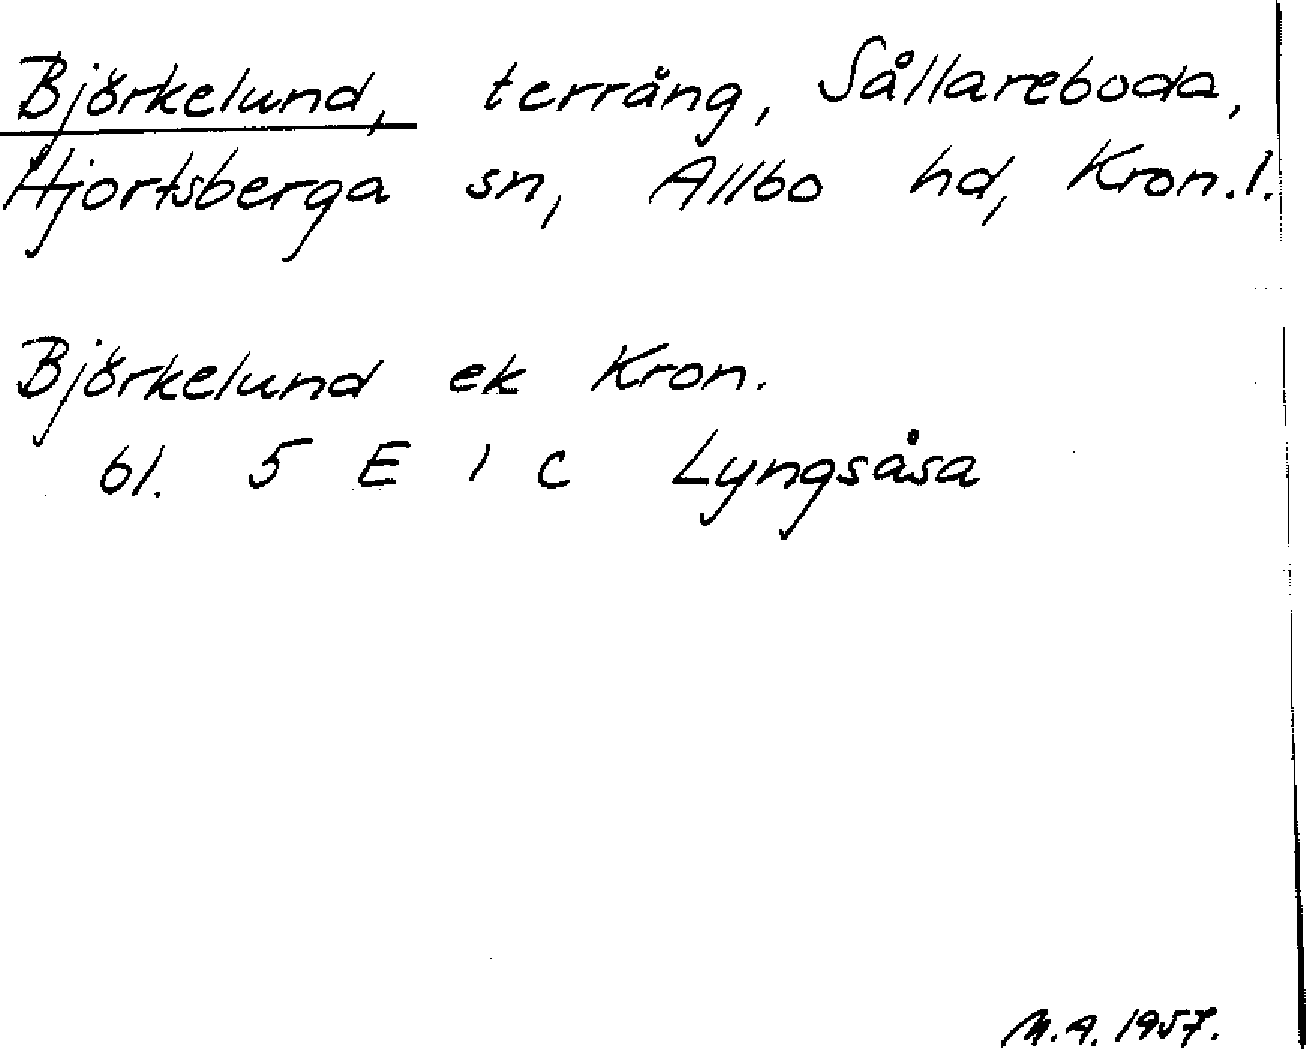 Björkelund, terräng, Sållareboda,
Hjortsberga sn, Allbo hd, Kron.l.
Björkelund ek Kron.
bl. 5 E 1 c Lyngsåsa
M.A. 1957.